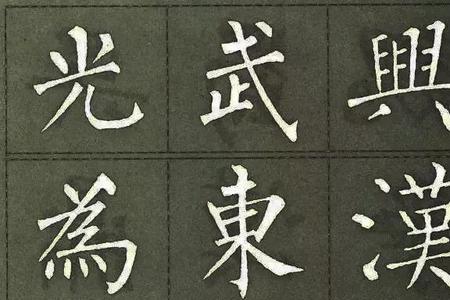 光武興
為東漢